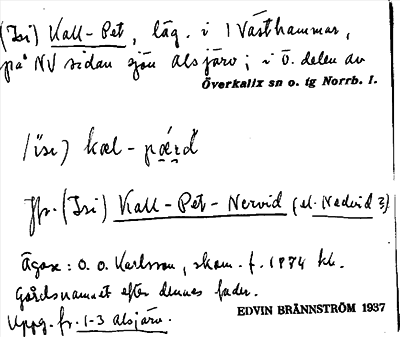 (Isi) Kall-Pet, läg. i 1 Västhammar,
på NV sidan sjön Alsjärv; i ö. delen av
Överkalix sn o. tg Norrb. l.
/isi) kæl-
Jfr. (Isi) Kall-Pet-Nervid (el. Nedvid?)
Ägare: O. O. Karlsson, skom. f. 1874 kk.
Gårdsnamnet efter dennes fader.
Uppg. fr. 1-3 Alsjärv.
EDVIN BRÄNNSTRÖM 1937